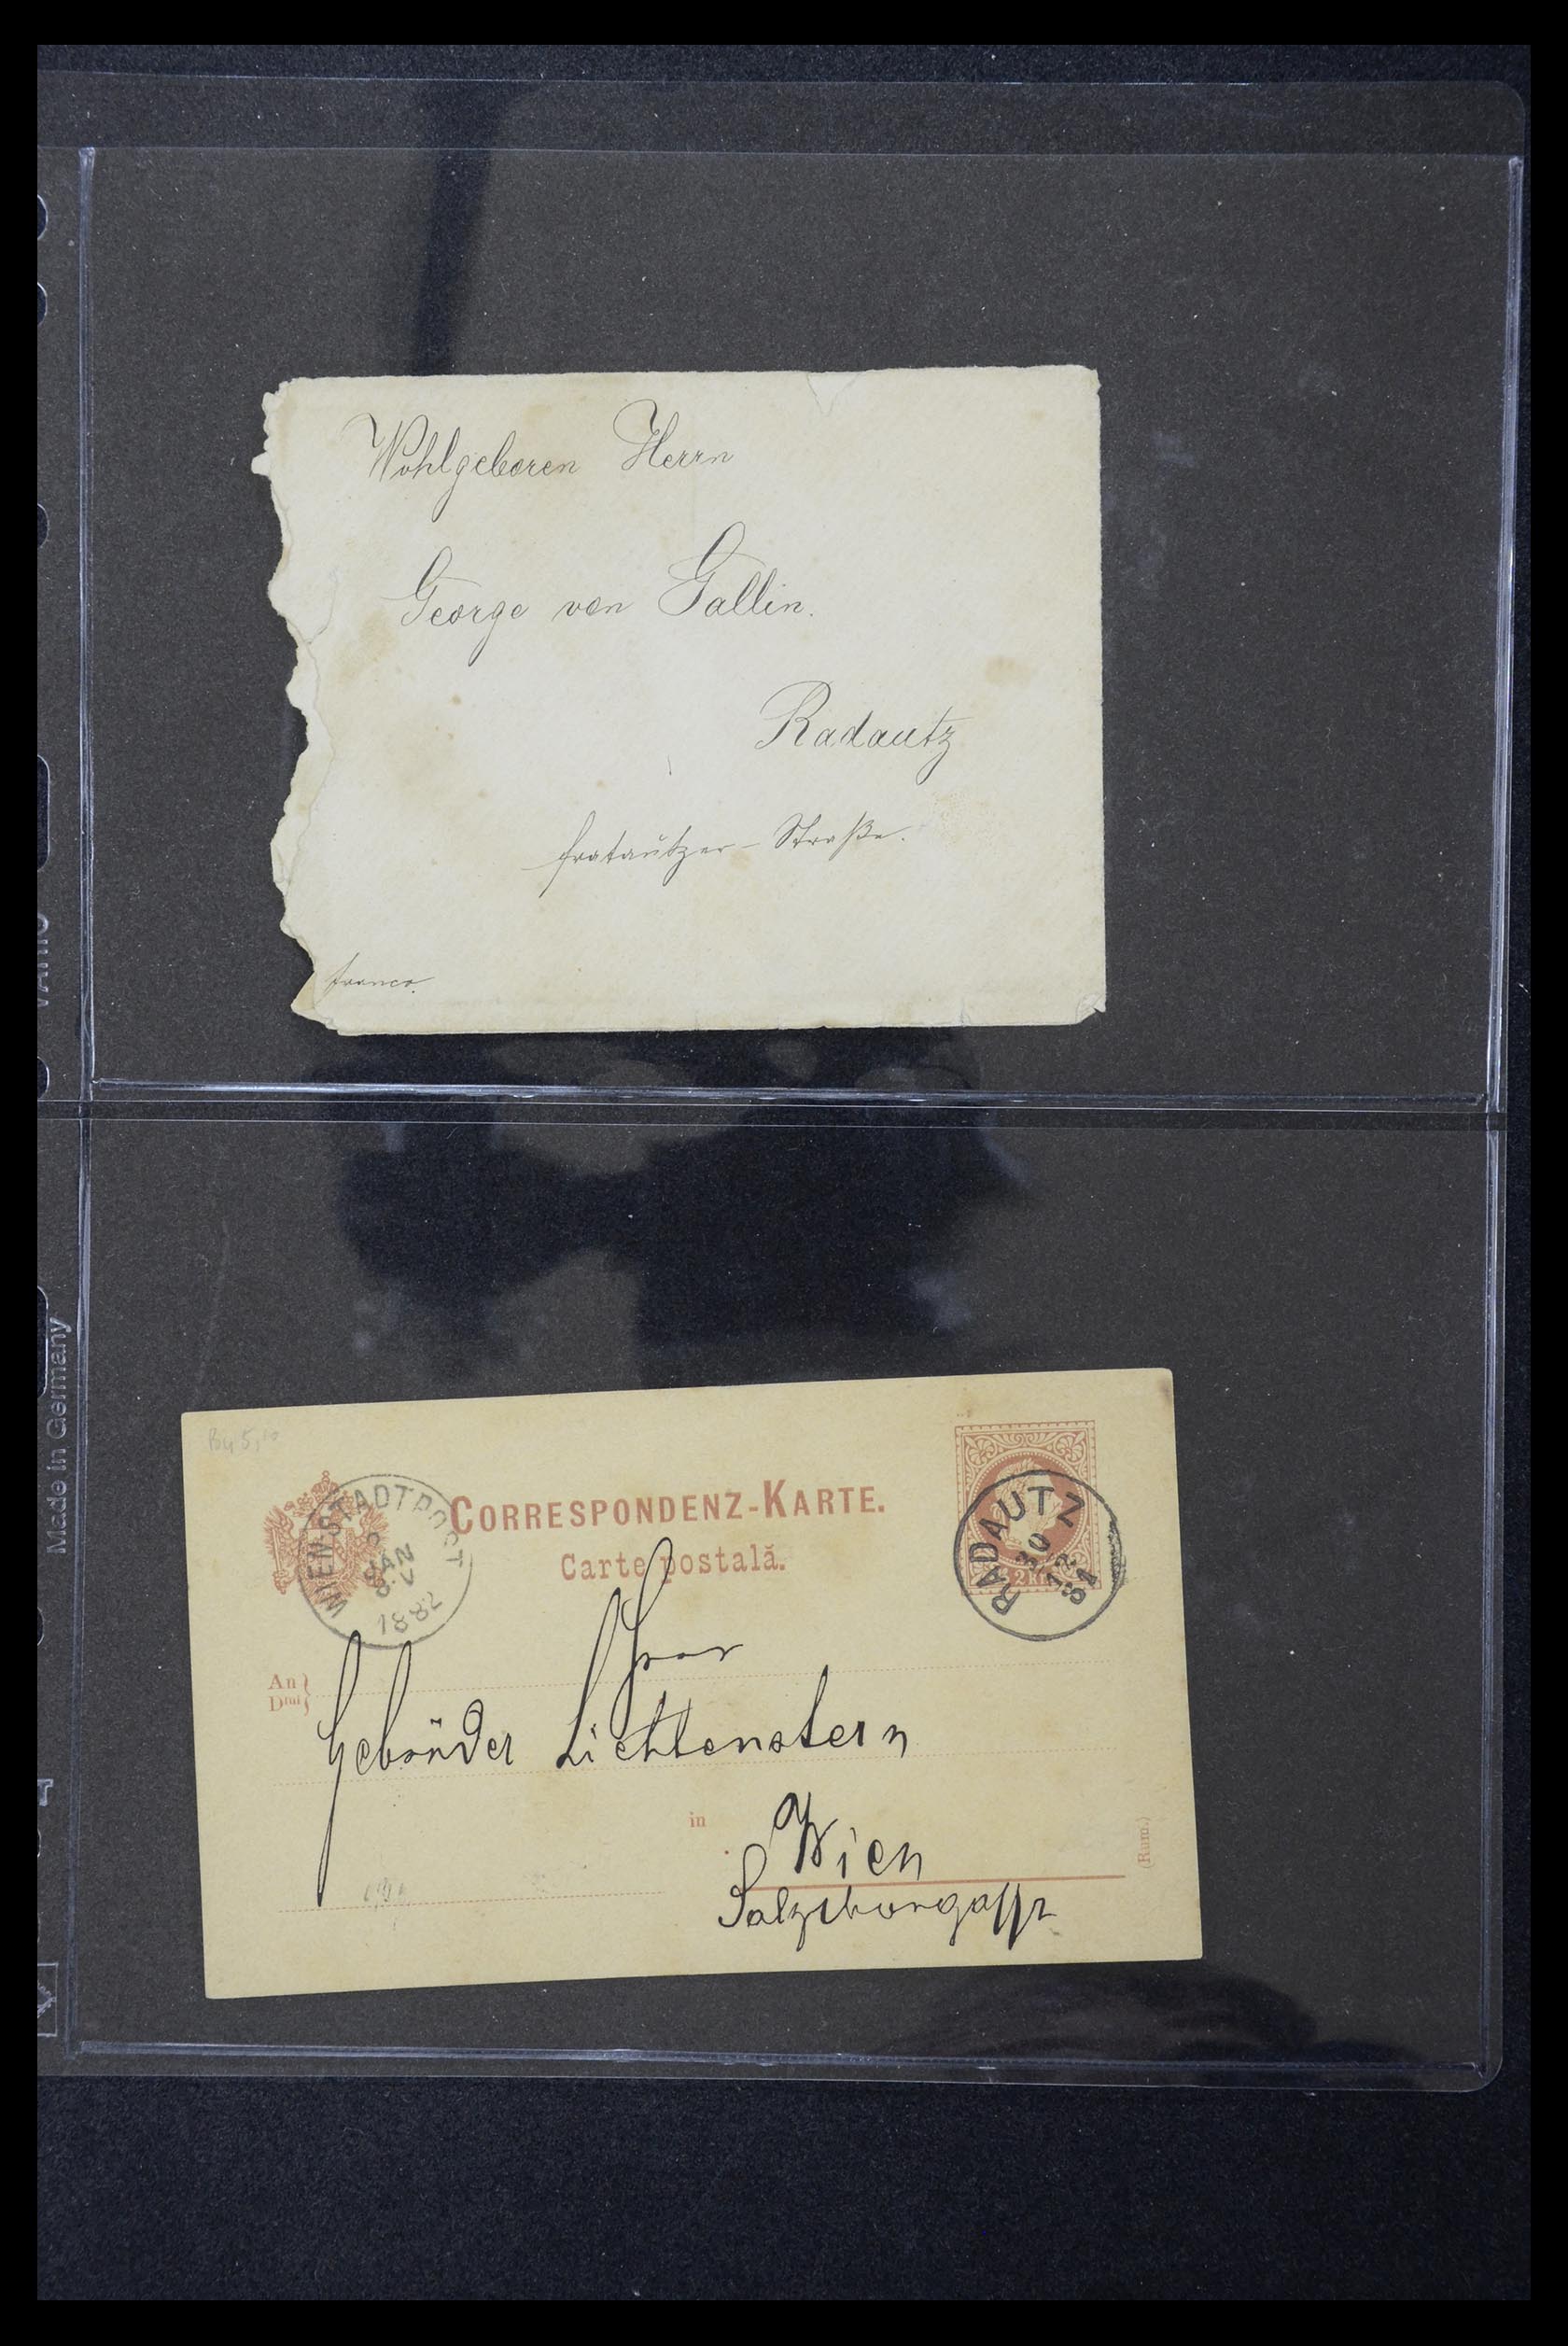 Wohlgeboren Herrn
George von Gallin.
Radautz
Fratautzer-Straße.
franco.
Made in Germany
VARIO
CORRESPONDENZ-KARTE.
Carte postală.
WIEN-STADTPOST
JAN
8.V
1882
RADAUTZ
30
12
81
2 Kr.
An
Dlui
Herr
Gebrüder Lichtenstern
in
Wien
(Rum.)